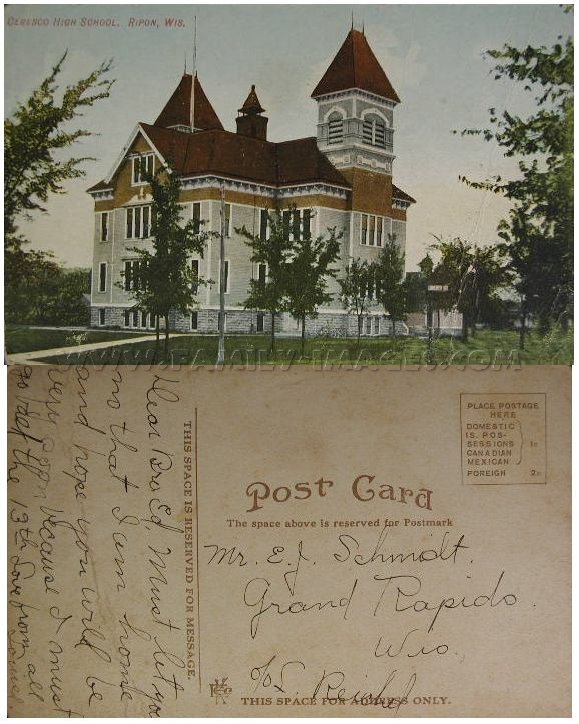 CERESCO HIGH SCHOOL, RIPON, WIS.
WWW.FAMILY-IMAGES.COM
PLACE POSTAGE
HERE
DOMESTIC
IS. POS-
SESSIONS
CANADIAN
MEXICAN
1c
FOREIGN 2c
Post Card
The space above is reserved for Postmark
THIS SPACE IS RESERVED FOR MESSAGE.
Dear Bro Ed Must let you
no that I am home
and hope you will be
very soon because I must
go back the 13th Love from all
Mr. E. J. Schmidt.
Grand Rapids.
Wis.
c/o L Reichel
THIS SPACE FOR ADDRESS ONLY.